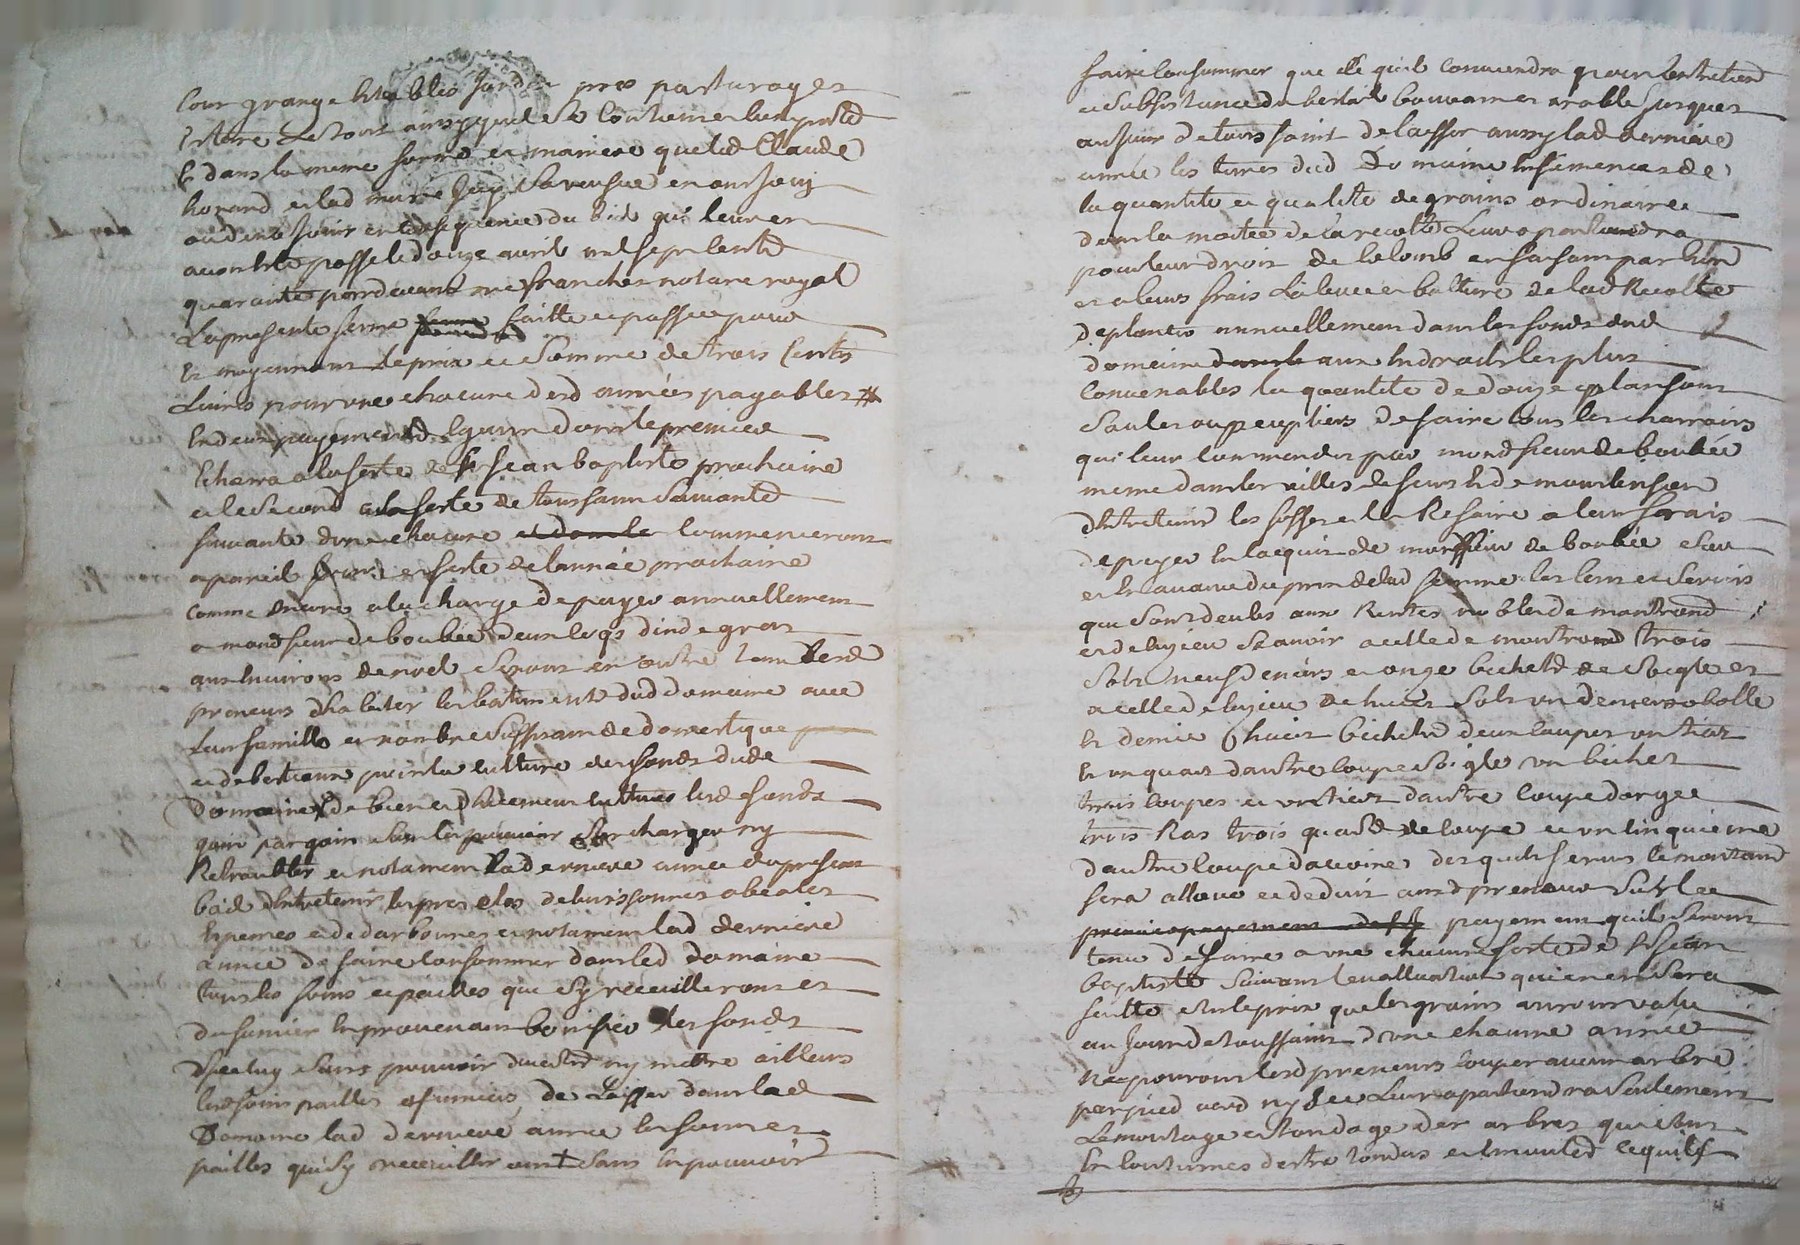 Cour grange Etables Jardin prés pasturages
Et tere Le tout ainsy quil se Contient et Comporte
Et dans la meme forme et maniere que led Claude
horand et lad marie Jay sa veusve en ont Jouy
ou deub Jouir en Consequence du bail qui leur en
a eu esté passé le douze avril mil sept cents
quarante pardevant me franchet notaire royal
La presente ferme faitte et passée pour
Et moyennant le prix et Somme de trois Cents
Livres pour une chacune desd années payables #
En deux payements Egaux dont le premier
Echerra a la feste de St Jean baptiste prochaine
et le second a la feste de toussaint suivante
suivante dune chacune et dans le Commencerons
a pareil Jour et feste de lannée prochaine
Comme encore a la charge de payer annuellement
a mondsieur de boubée deux coqs dinde gras
aux Environs de noel seront en outre tenu Lesd
preneurs dhabiter les batiments dud domaine avec
Leur famille et nombre suffisant de domestique
et de bestiaux pour la culture des fonds dud
Domaine de bien et duement cultiver lesd fonds
gain par gain sans les pouvoir surcharger ny
Retroubler et notament Lad derniere année du present
bail dEntretenir les pres clos debuissonnes abeales
Espierres et dedarbonnes et notament lad derniere
année de faire consommer dans led Domaine
tous les foins et pailles que sy receuilleront et
du fumier En provenant bonifier les fonds
diceluy sans pouvoir divertir ny mettre ailleurs
lesd foins pailles et fumiers de Laisser dans led
Domaine lad derniere année les fumier
pailles qui sy receuilleront sans En pouvoir
faire Consummer que ce quil Conviendra pour Lentretient
et Subsistance du bestail bouvames arable Jusques
au Jour de toussaint de laisser aussy lad derniere
année les terres dud Domaine Ensemencés de
la quantité et qualité de grains ordinaire
dont la moitée de la recolte Leur apartiendra
pour leur droit de Colomb en faisant par Eux
et a leurs frais La levée et batture de lad Recolte
de planter annuellement dans les fonds dud
domaine dans le aux Endroits les plus
Convenables la quantité de douze plansons
Saules ou peupliers de faire tous les charrois
qui leur Commandes par mondsieur de boubée
meme dans les villes de feurs Et de montbrison
dEntretenir les fosses et les Refaire a leur frais
de payer En lacquit de monsieur de boubée sur
et En avance du prix de lad ferme les Cens et Servis
que sont deubs aux Rentes nobles de montrond
et de lugieu scavoir a celle de montrond trois
sols neuf deniers et onze bichets de seigle et
a celle de lugieu de huict sols un denier obolle
Et demie huict bichets deux coupes un tiers
Et un quart dautre coupe seigle un bichet
trois coupes et un tiers dautre coupe dorgee
trois Ras trois quard de coupe et un cinquieme
dautre coupe davoine desquels servis le montant
sera alloué et deduit auxd preneurs sur le
premier payement de St payement quils seront
tenu de faire a une chacune feste de St Jean
baptiste suivant levalluation qui en en sera
faitte sur le prix que les grains auront valu
au Jour de toussaint dune chacune année
Ne pourront lesd preneurs couper aucun arbre
par pied verd ny sec Leur apartiendra seulement
Lemontage et tondage des arbres qui sont
En Coutumes destre tondus et Emontés ce quils